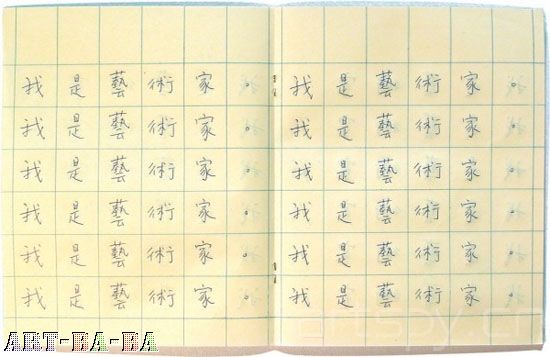 我是藝術家。
我是藝術家。
我是藝術家。
我是藝術家。
我是藝術家。
我是藝術家。
我是藝術家。
我是藝術家。
我是藝術家。
我是藝術家。
我是藝術家。
我是藝術家。
ART-BA-BA